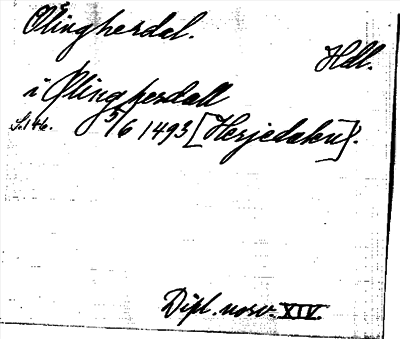 Ølingherdal.
Hdl.
i Ølingherdall
S. 146. 5/6 1493 [Herjedalen].
Dipl. norv. XIV.